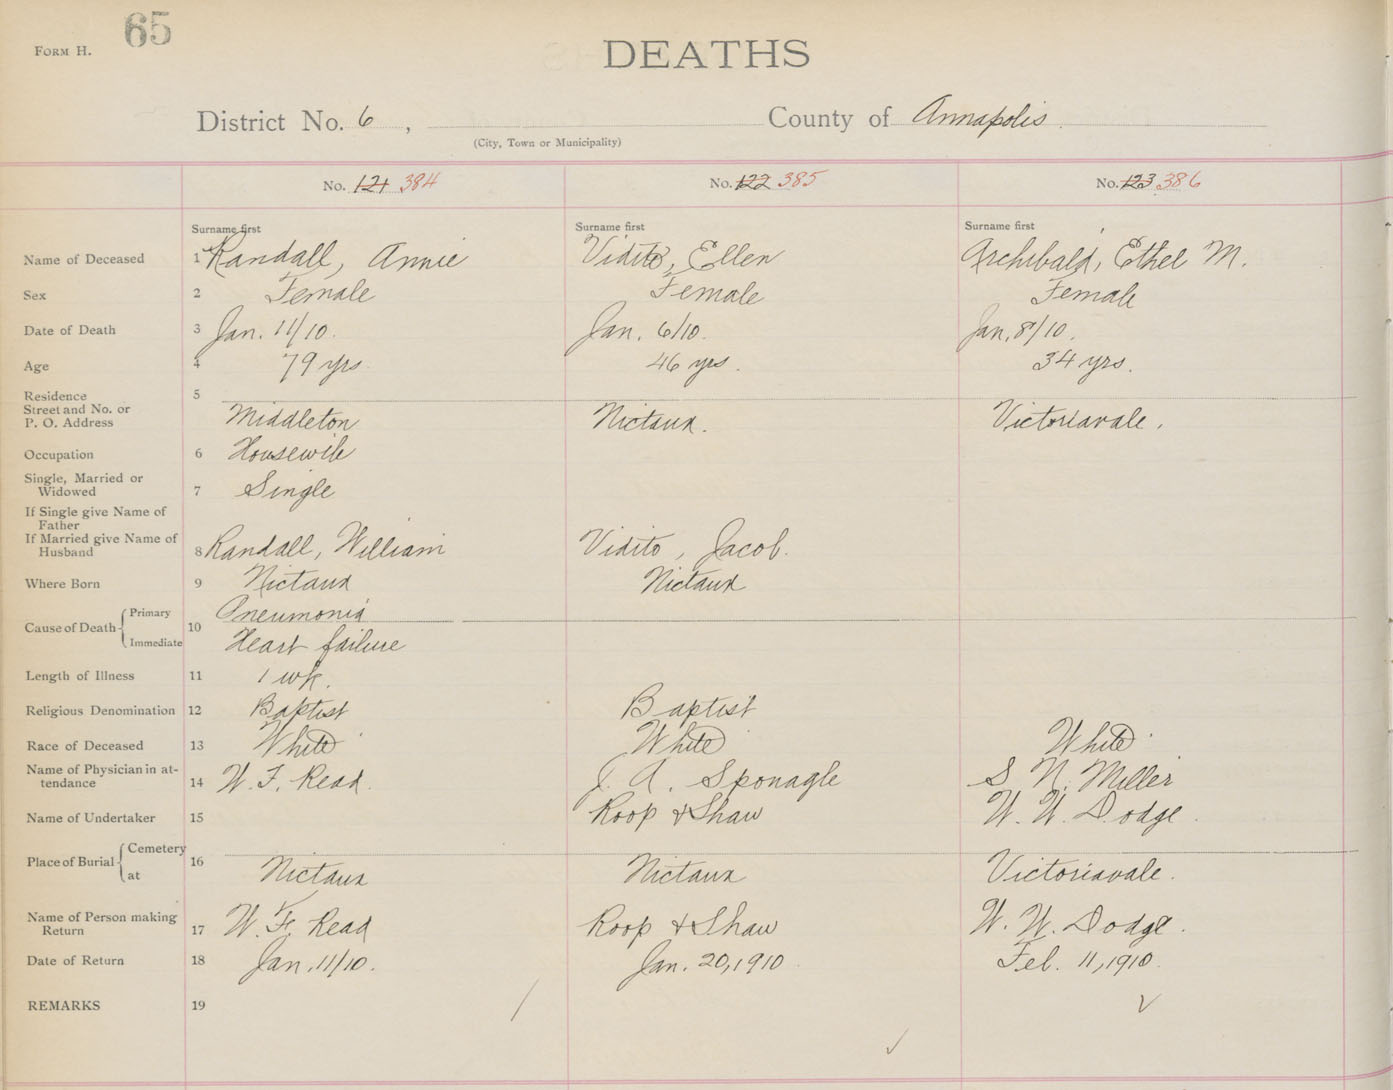 65
FORM H.
DEATHS
District No. 6, County of Annapolis
(City, Town or Municipality)
No. 121 384 No. 122 385 No. 123 386
Surname first Surname first Surname first
Name of Deceased 1 Randall, Annie Vidito, Ellen Archibald, Ethel M.
Sex 2 Female Female Female
Date of Death 3 Jan. 11/10. Jan. 6/10. Jan. 8/10.
Age 4 79 yrs. 46 yrs. 34 yrs.
Residence 5
Street and No. or
P. O. Address Middleton Nictaux. Victoriavale.
Occupation 6 Housewife
Single, Married or
Widowed 7 Single
If Single give Name of
Father
If Married give Name of
Husband 8 Randall, William Vidito, Jacob.
Where Born 9 Nictaux Nictaux
Cause of Death Primary 10 Pneumonia
Immediate Heart failure
Length of Illness 11 1 wk.
Religious Denomination 12 Baptist Baptist
Race of Deceased 13 White White White
Name of Physician in at-
tendance 14 W. F. Read. J. A. Sponagle S. N. Miller
Name of Undertaker 15 Roop & Shaw W. W. Dodge.
Place of Burial Cemetery 16
at Nictaux Nictaux Victoriavale.
Name of Person making
Return 17 W. F. Read Roop & Shaw W. W. Dodge.
Date of Return 18 Jan. 11/10. Jan. 20, 1910 Feb. 11, 1910.
REMARKS 19